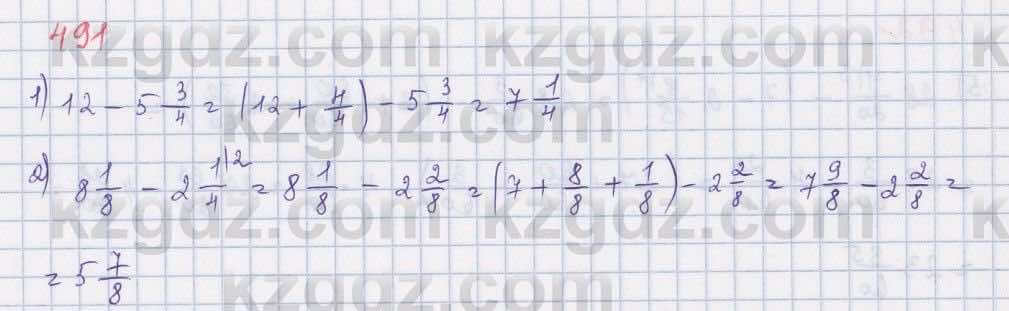 491
kzgdz.com kzgdz.com
1) 12 - 5 3/4 = (12 + 4/4) - 5 3/4 = 7 1/4
kzgdz.com
2) 8 1/8 - 2 1/4 |2 = 8 1/8 - 2 2/8 = (7 + 8/8 + 1/8) - 2 2/8 = 7 9/8 - 2 2/8 =
kzgdz.com kzgdz.com
= 5 7/8
kzgdz.com